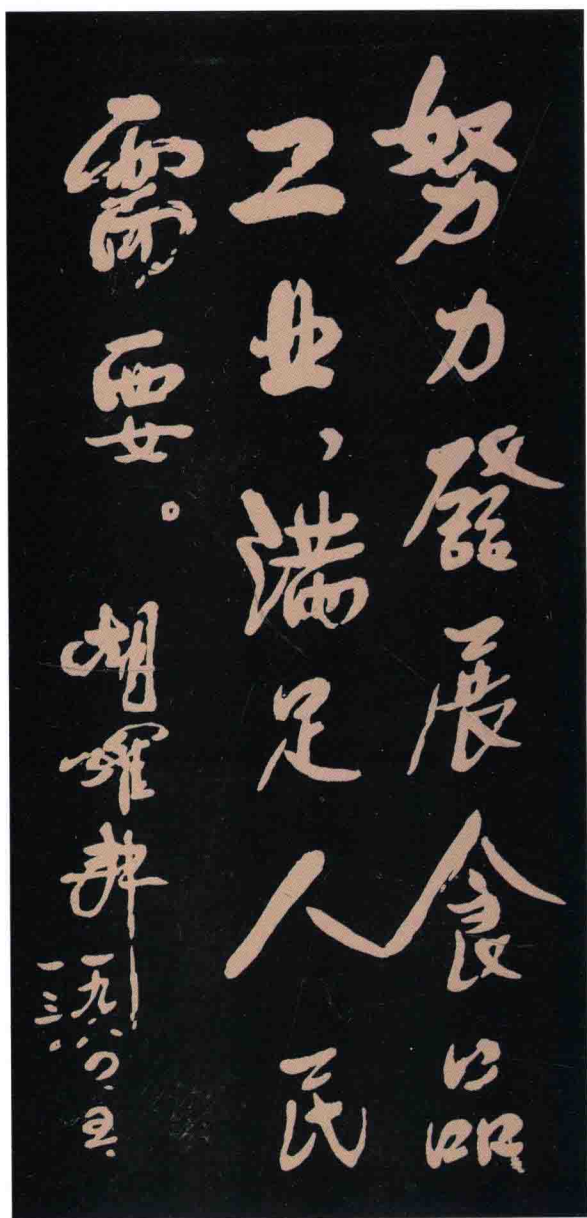 努力發展食品
工业，满足人民
需要。 胡耀邦
一九八四.五.
一三.